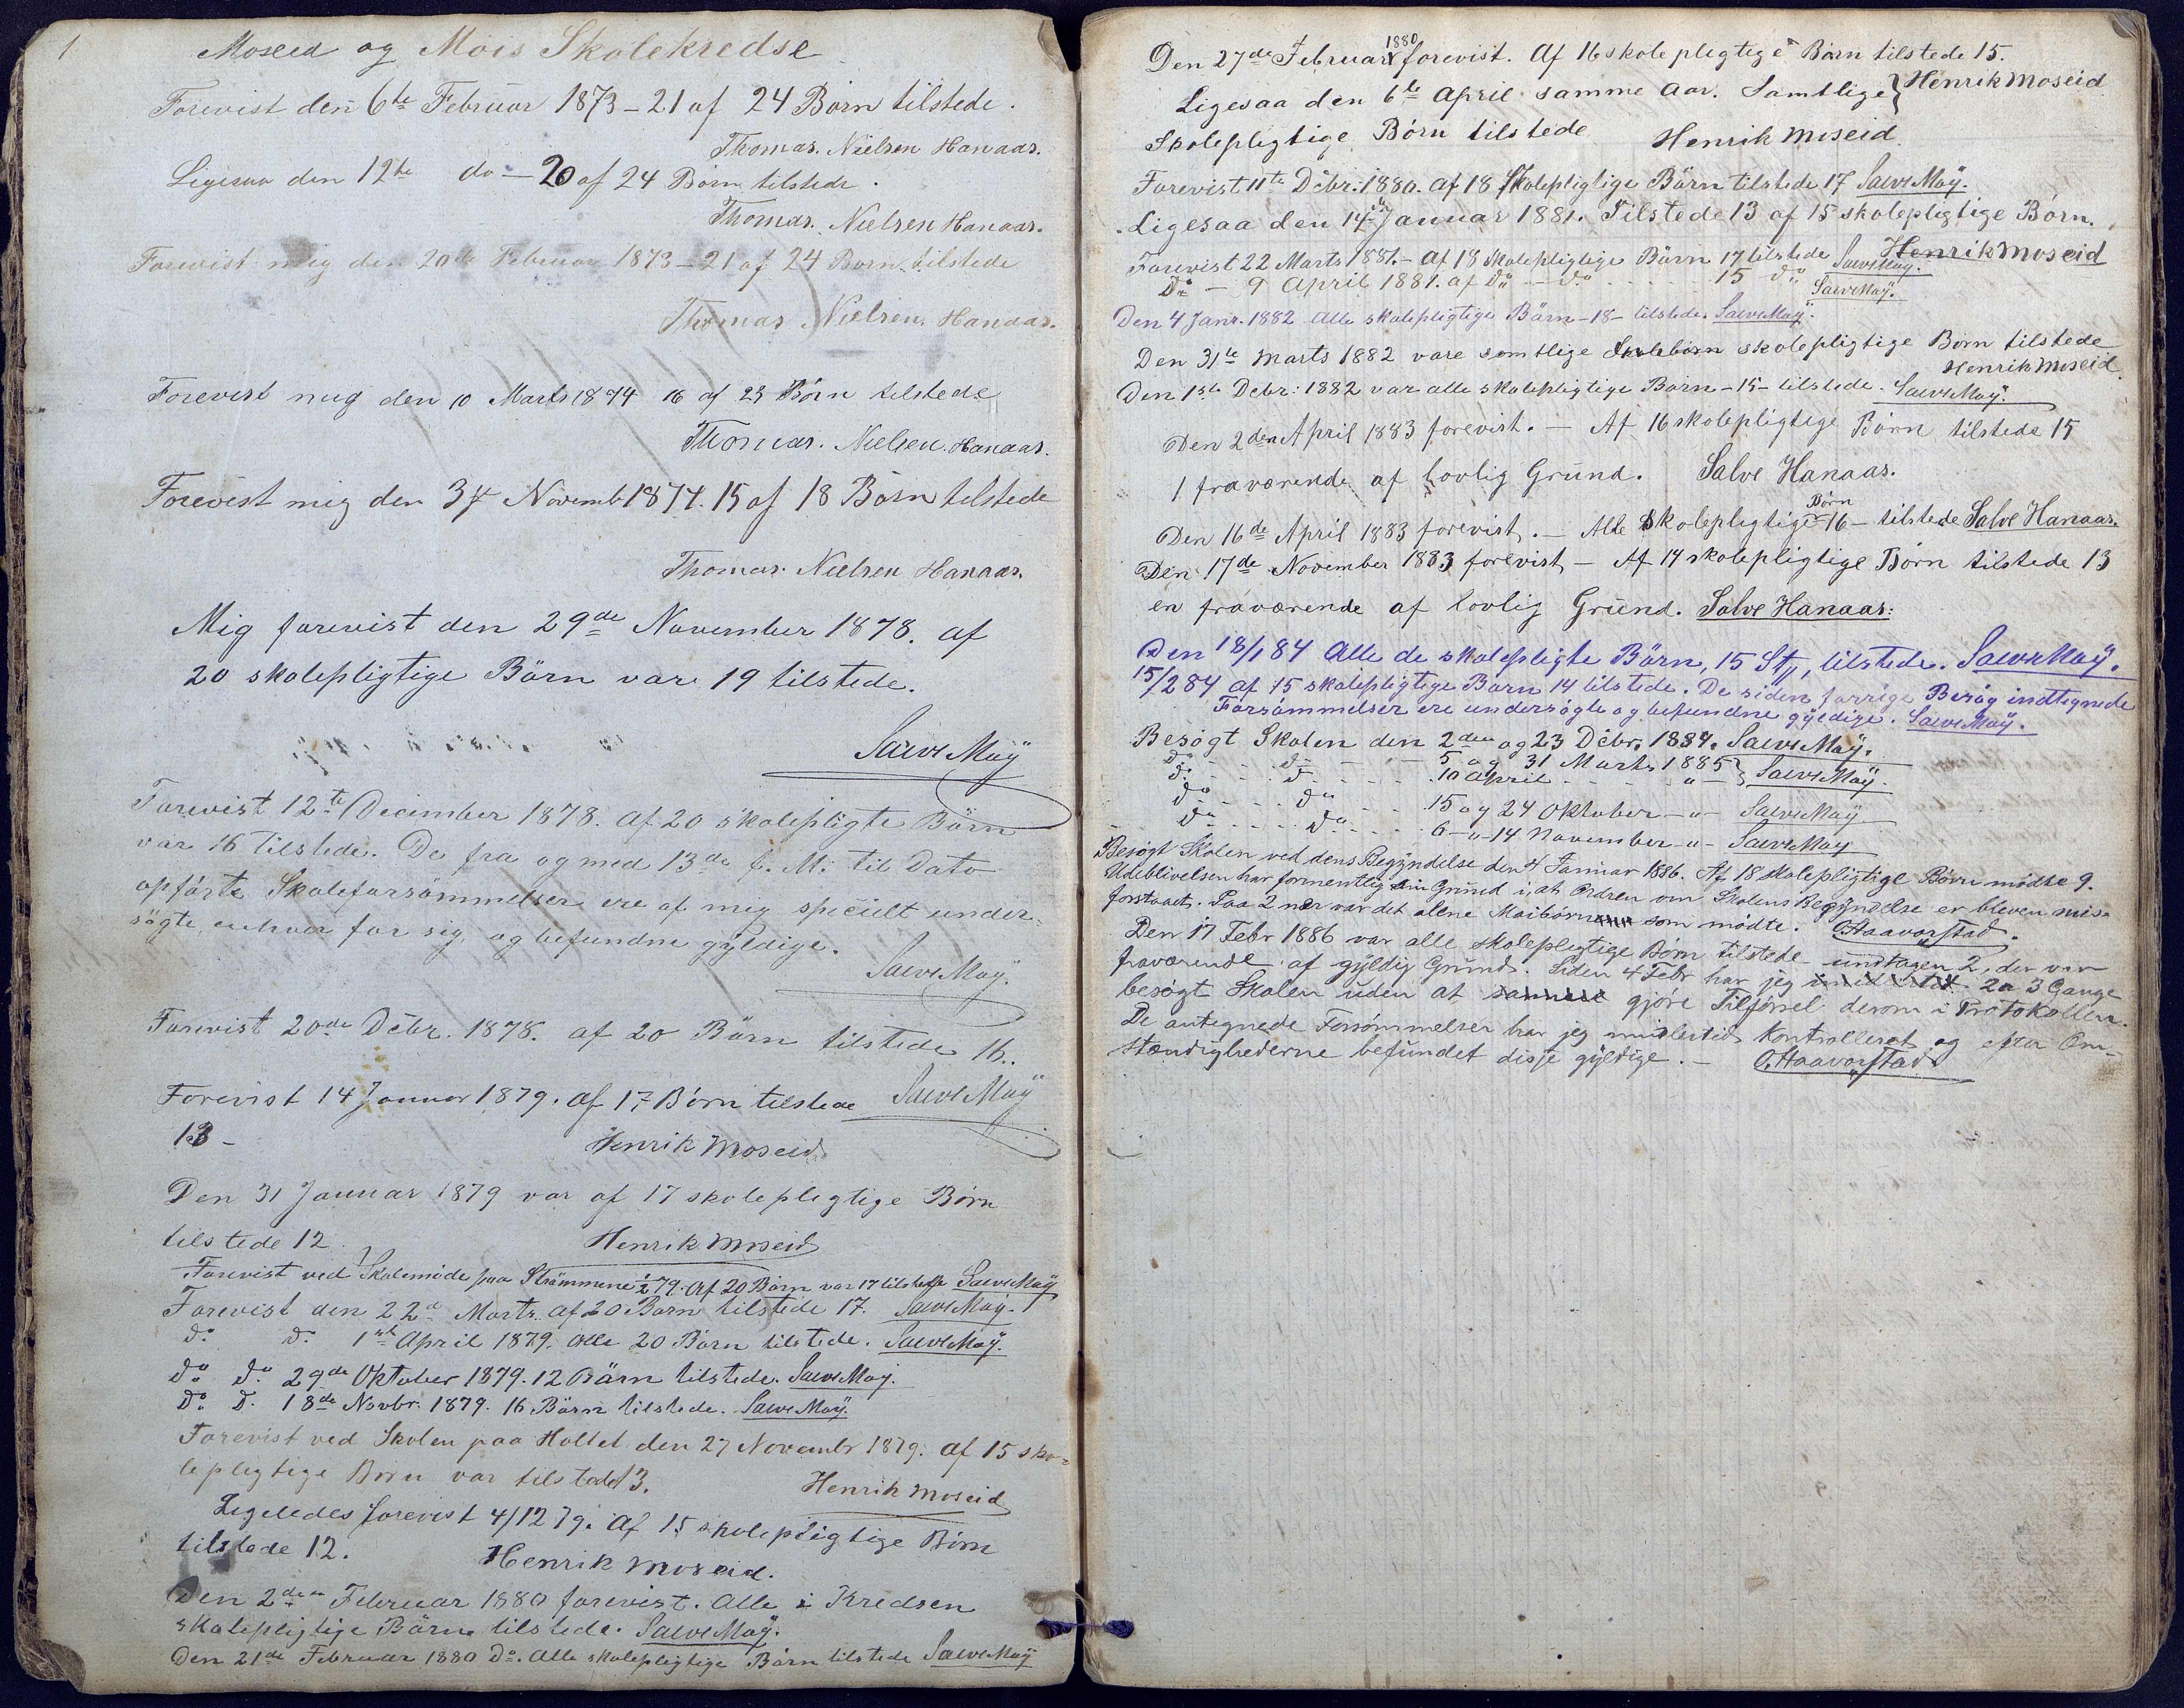 1
Moseid og Mois Skolekredse
Forevist den 6te Februar 1873 – 21 af 24 Børn tilstede.
Thomas. Nielsen Hanaas.
Ligesaa den 12te do – 20 af 24 Børn tilstede.
Thomas. Nielsen Hanaas.
Forevist mig den 20de Februar 1873 – 21 af 24 Børn tilstede
Thomas Nielsen. Hanaas.
Forevist mig den 10 Marts 1874 16 af 23 Børn tilstede
Thomas. Nielsen. Hanaas.
Forevist mig den Novemb 1874. 15 af 18 Børn tilstede
Thomas. Nielsen Hanaas.
Mig forevist den 29de November 1878. af
20 skolepligtige Börn var 19 tilstede.
Salve Moÿ
Forevist 12te December 1878. Af 20 skolepligte Börn
var 16 tilstede. De fra og med 13de f. M. til Dato
opførte Skoleforsömmelser ere af mig specielt under-
sögte enhver for sig og befundne gyldige.
Salve Moÿ.
Forevist 20de Decbr. 1878. af 20 Börn tilstede 16.
Salve Moÿ
Forevist 14 Januar 1879. af 17 Børn tilstede
13 –
Henrik Moseid
Den 31 Januar 1879 var af 17 skolepligtige Børn
tilstede 12.
Henrik Moseid
Forevist ved Skolemöde paa Strömmene 79. Af 20 Börn var 17 tilstede Salve Moÿ
Forevist den 22d Marts. Af 20 Børn tilstede 17. Salve Moÿ.
do do 1ste April 1879. Alle 20 Børn tilstede. Salve Moÿ.
do do 29de Oktober 1879. 12 Børn tilstede. Salve Moÿ.
Do D. 18de Novbr. 1879. 16 Börn tilstede. Salve Moÿ.
Forevist ved Skolen paa Holtet den 27 Novembr 1879. af 15 sko-
lepligtige Børn var tilstede 13.
Henrik Moseid
Ligeledes forevist 4/12 79. Af 15 skolepligtige Børn
tilstede 12.
Henrik Moseid.
Den 2den Februar 1880 forevist. Alle i Kredsen
skolepligtige Börn tilstede. Salve Moÿ.
Den 21de Februar 1880 Do. Alle skolepligtige Börn tilstede Salve Moÿ
Den 27de Februar 1880 forevist. Af 16 skolepligtige Børn tilstede 15.
Henrik Moseid
Ligesaa den 6te April samme Aar. Samtlige
Skolepligtige Børn tilstede Henrik Moseid.
Forevist 11te Decbr. 1880. Af 18 Skolepligtige Börn tilstede 17 Salve Moÿ.
Ligesaa den 14de Januar 1881. Tilstede 13 af 15 skolepligtige Børn.
Henrik Moseid
Forevist 22 Marts 1881. – Af 18 skolepligtige Börn 17 tilstede Salve Moÿ.
Do – 9 April 1881. af Do – do 15 do Salve Moÿ.
Den 4 Janr. 1882 Alle skolepligtige Börn – 18 – tilstede. Salve Moÿ.
Den 31te Marts 1882 vare samtlige Skolebørn skolepligtige Børn tilstede
Henrik Moseid.
Den 1ste Decbr: 1882 var alle skolepligtige Børn – 15 – tilstede. Salve Moÿ.
Den 2den April 1883 forevist. – Af 16 skolepligtige Børn tilstede 15
1 fraværende af lovlig Grund. Salve Hanaas.
Den 16de April 1883 forevist. – Alle Skolepligtige Børn 16 – tilstede Salve Hanaas.
Den 17de November 1883 forevist – Af 14 skolepligtige Børn tilstede 13
en fraværende af lovlig Grund. Salve Hanaas:
Den 18/1 84 Alle de skolepligte Börn, 15 Stÿ, tilstede. Salve Moÿ.
15/2 84 Af 15 skolepligtige Børn 14 tilstede. De siden forrige Besøg indtegnede
Forsømmelser ere undersögte og befundne gyldige. Salve Moÿ.
Besögt Skolen den 2den og 23 Decbr. 1884. Salve Moÿ.
do do – 5 og 31 Marts 1885
do do 10 April – " – Salve Moÿ.
do do 15 og 24 Oktober – " – Salve Moÿ
do do 6 – " – 14 November – " – Salve Moÿ
Besøgt Skolen ved dens Begyndelse den 4 Januar 1886. Af 18 skolepligtige Børn mødte 9.
Udeblivelsen har formentlig sin Grund i at Ordren om Skolens Begyndelse er bleven mis-
forstaaet. Paa 2 nær var det alene Moibørn som mødte. O. Haavorstad.
Den 17 Febr 1886 var alle skolepligtige Børn tilstede undtagen 2, der var
fraværende af gyldig Grund. Siden 4 Febr har jeg 2 a 3 Gange
besøgt Skolen uden at gjøre Tilførsel derom i Protokollen.
De antegnede Forsømmelser har jeg imidlertid kontrolleret og efter Om-
stændighederne befundet disse gyldige. – O. Haavorstad